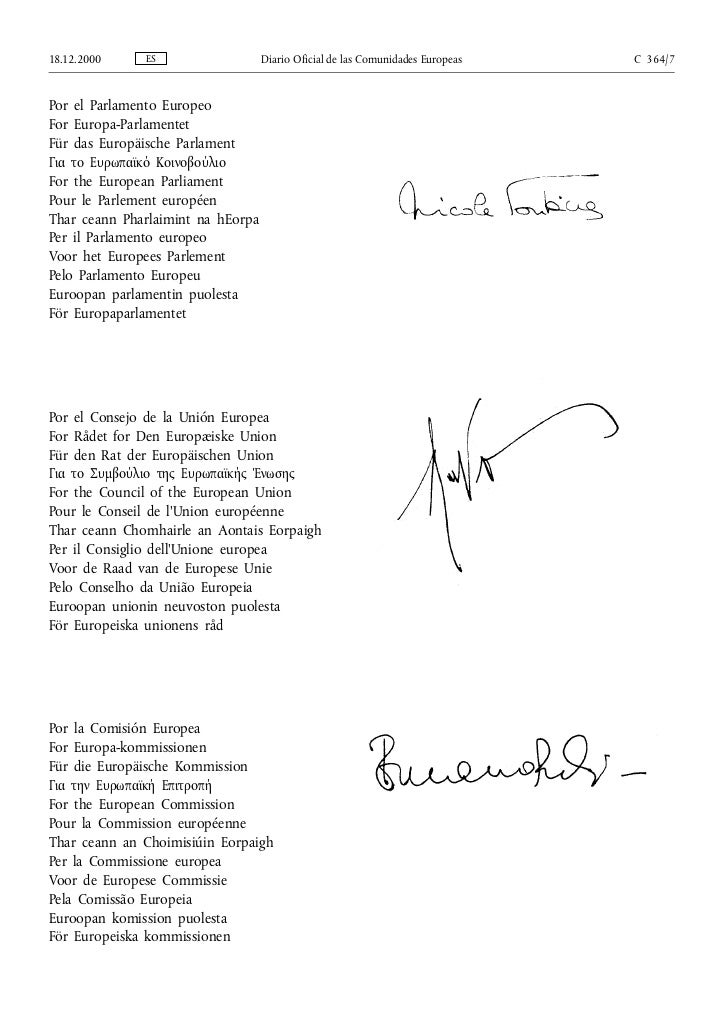 18.12.2000 ES Diario Oficial de las Comunidades Europeas C 364/7
Por el Parlamento Europeo
For Europa-Parlamentet
Für das Europäische Parlament
Για το Ευρωπαϊκό Κοινοβούλιο
For the European Parliament
Pour le Parlement européen
Thar ceann Pharlaimint na hEorpa
Per il Parlamento europeo
Voor het Europees Parlement
Pelo Parlamento Europeu
Euroopan parlamentin puolesta
För Europaparlamentet
Nicole
Por el Consejo de la Unión Europea
For Rådet for Den Europæiske Union
Für den Rat der Europäischen Union
Για το Συμβούλιο της Ευρωπαϊκής Ένωσης
For the Council of the European Union
Pour le Conseil de l'Union européenne
Thar ceann Chomhairle an Aontais Eorpaigh
Per il Consiglio dell'Unione europea
Voor de Raad van de Europese Unie
Pelo Conselho da União Europeia
Euroopan unionin neuvoston puolesta
För Europeiska unionens råd
Por la Comisión Europea
For Europa-kommissionen
Für die Europäische Kommission
Για την Ευρωπαϊκή Επιτροπή
For the European Commission
Pour la Commission européenne
Thar ceann an Choimisiúin Eorpaigh
Per la Commissione europea
Voor de Europese Commissie
Pela Comissão Europeia
Euroopan komission puolesta
För Europeiska kommissionen